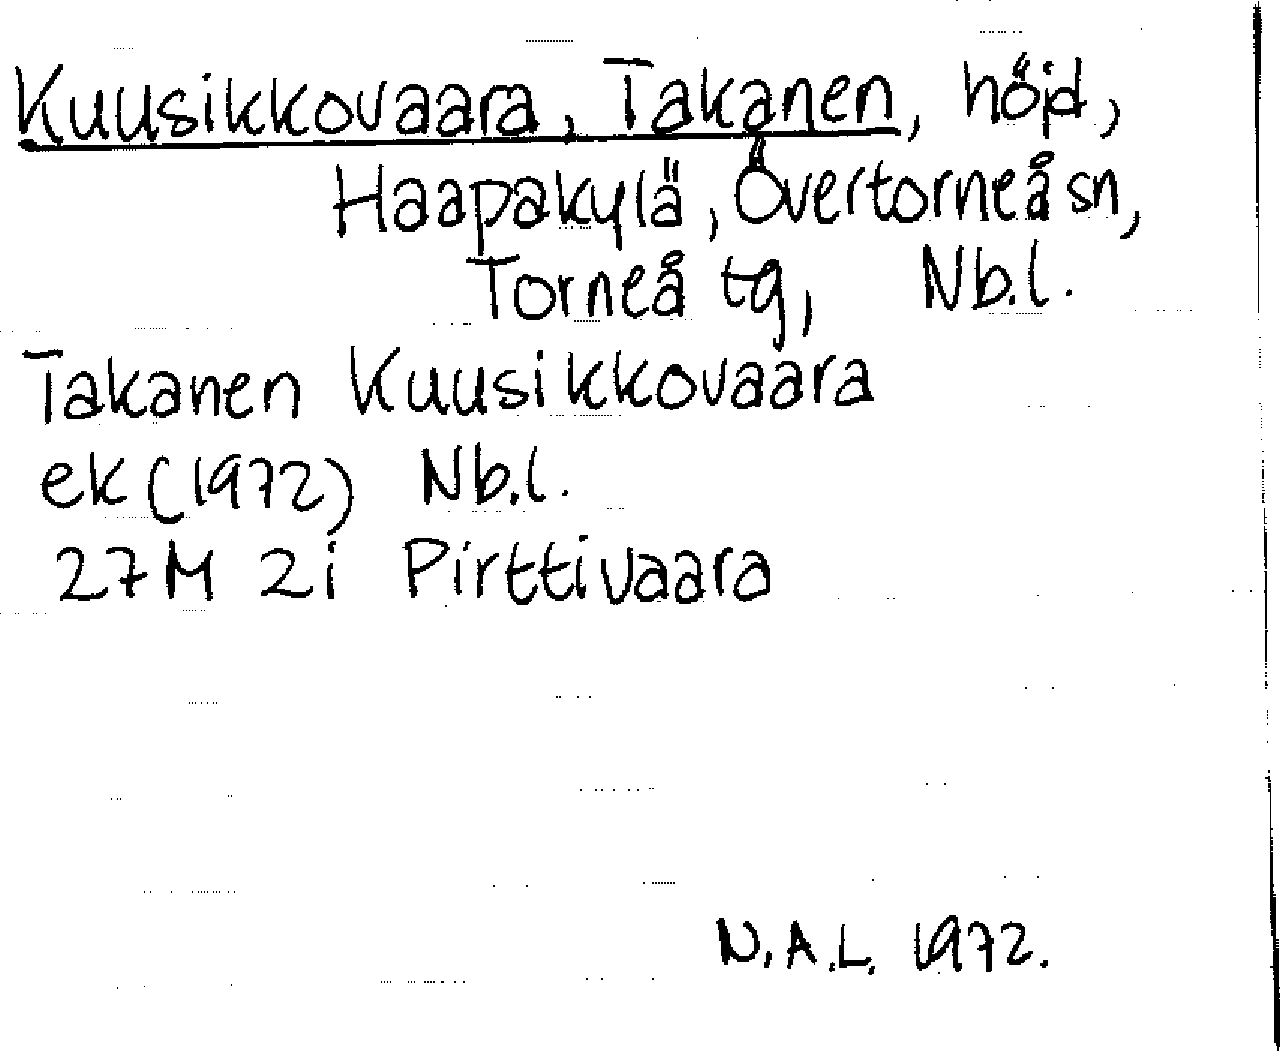 Kuusikkovaara, Takanen, höjd,
Haapakylä, Övertorneå sn,
Torneå tg, Nb.l.
Takanen Kuusikkovaara
ek (1972) Nb.l.
27M 2i Pirttivaara
N.A.L. 1972.